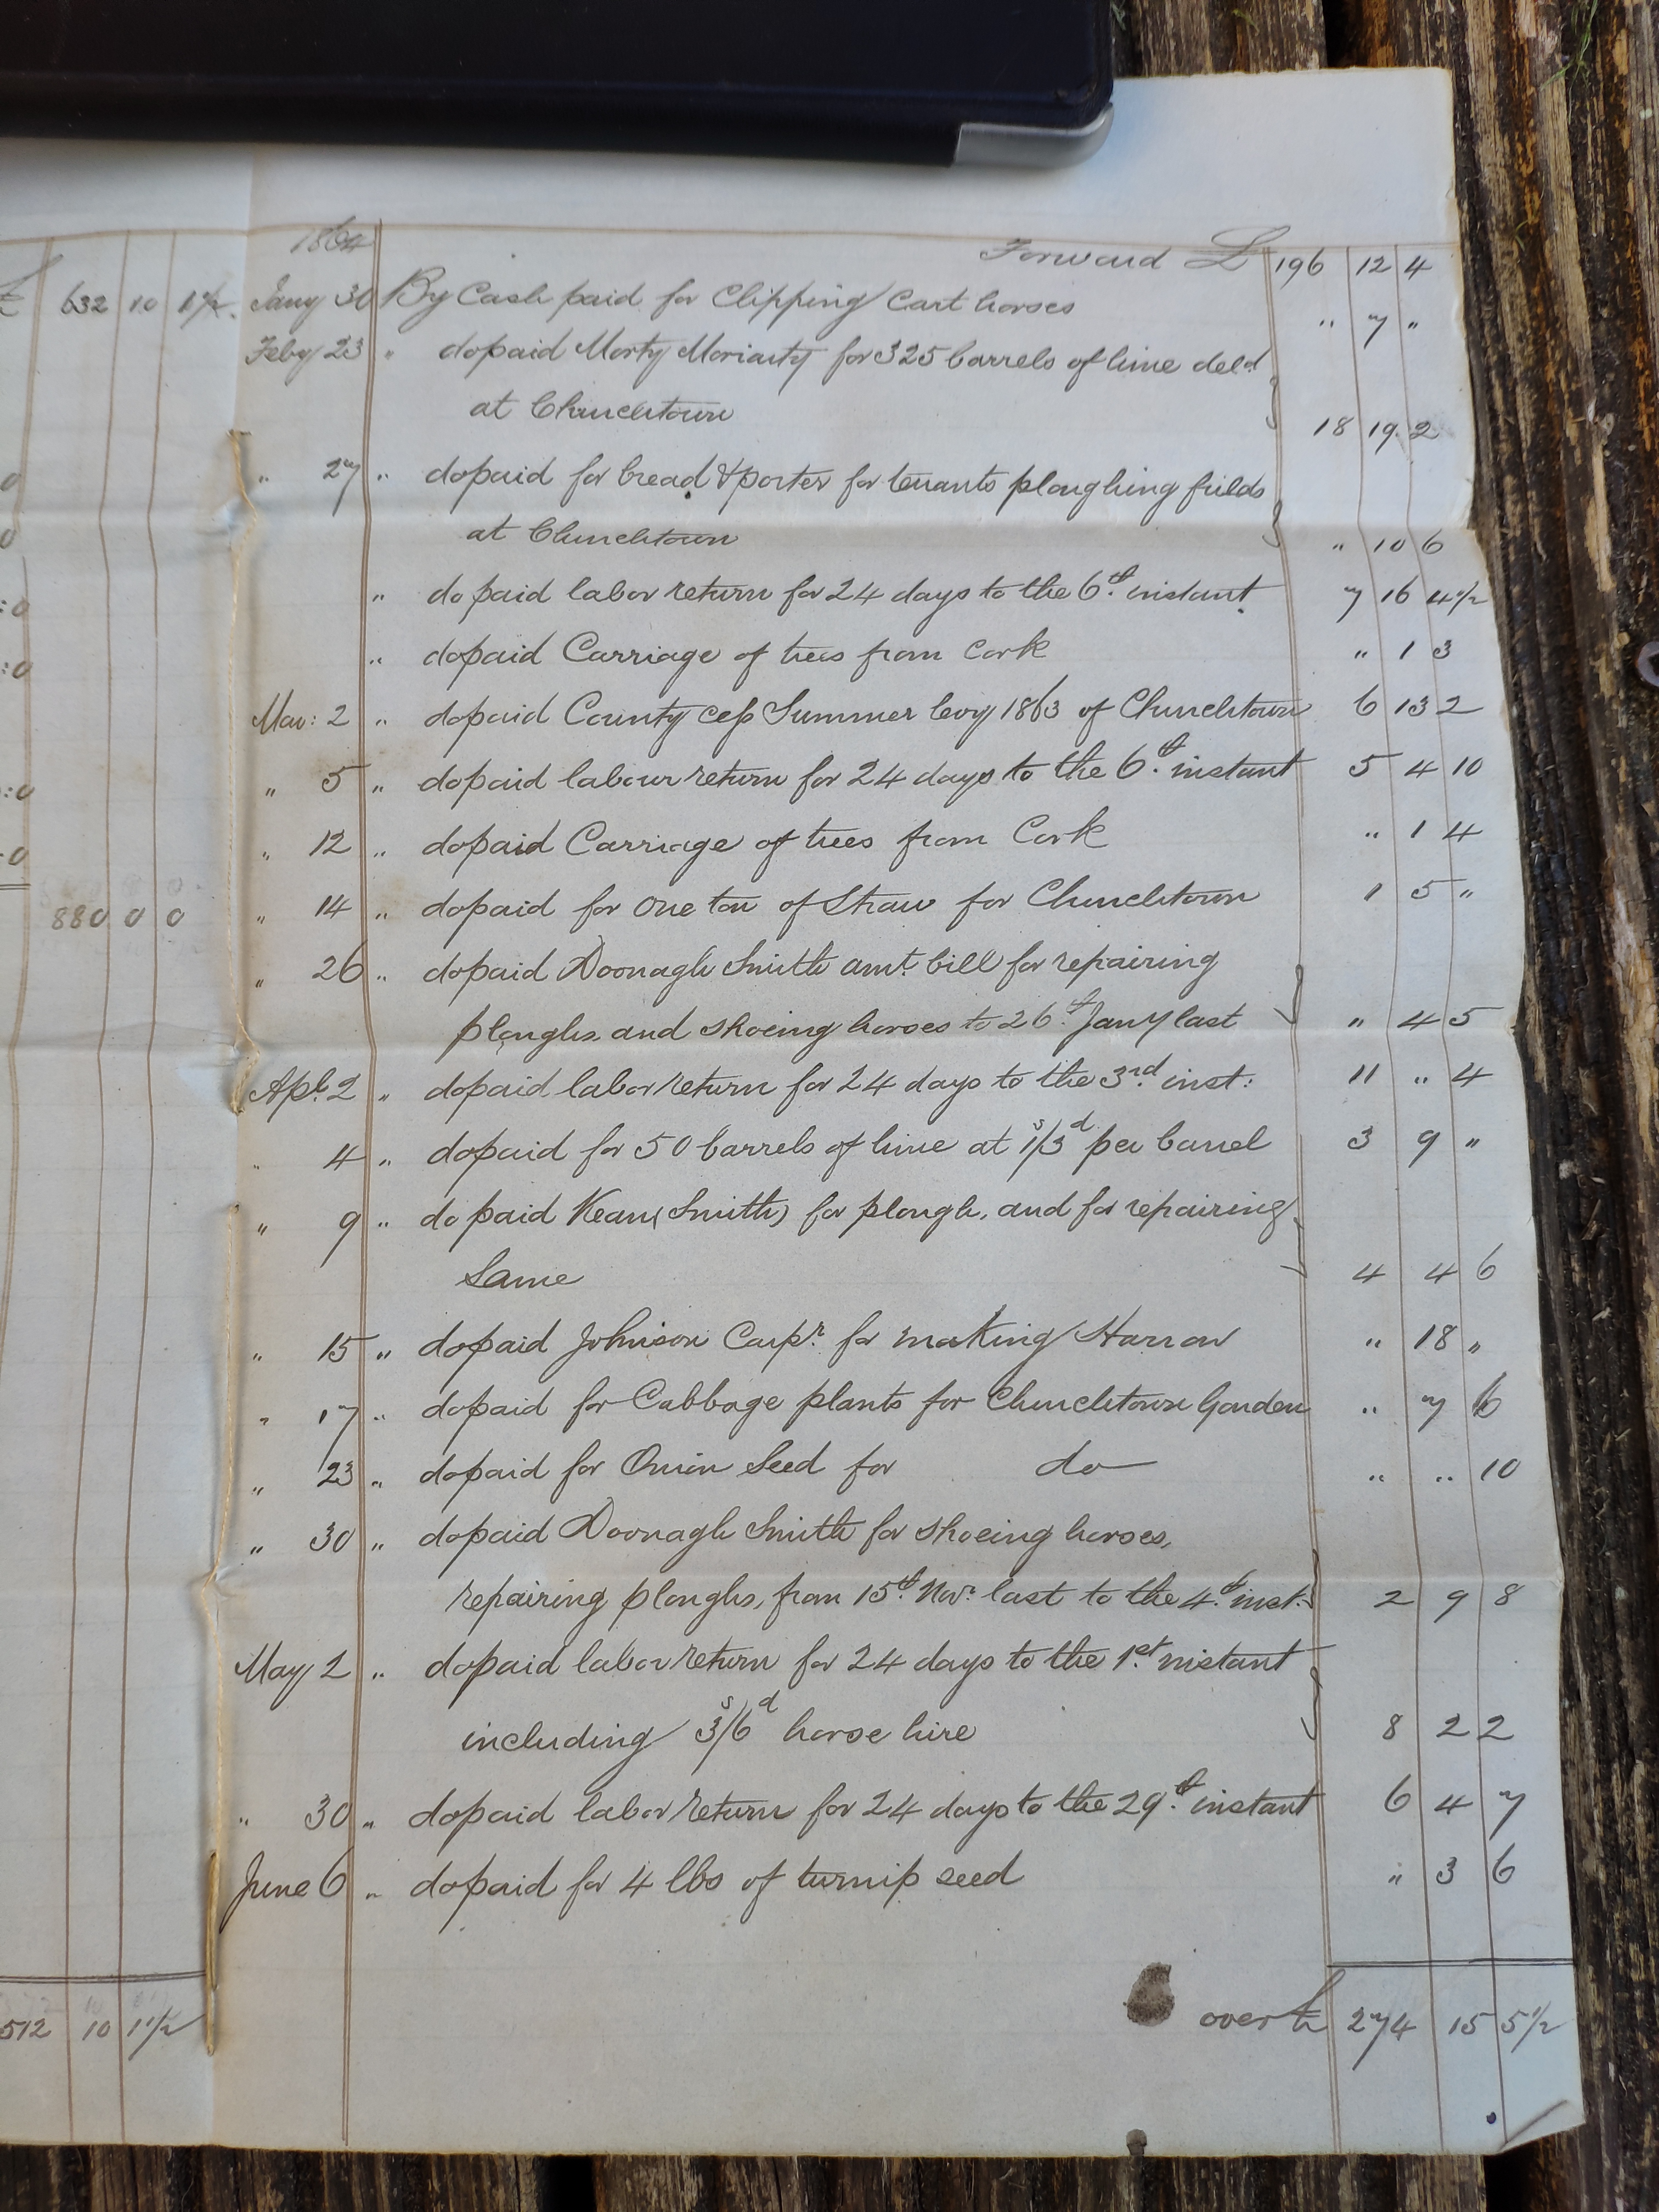 1864
Forward £ 196 12 4
£ 632 10 1½ Jany 30 By Cash paid for Clipping Cart horses " 7 "
Feby 23 " do paid Morty Moriarty for 325 barrels of lime deld
at Churchtown 18 19 2
" 27 " do paid for bread & porter for tenants ploughing fields
at Churchtown " 10 6
" do paid labor return for 24 days to the 6th instant 7 16 4½
" do paid Carriage of trees from Cork " 1 3
Mar: 2 " do paid County cess Summer levy 1863 of Churchtown 6 13 2
" 5 " do paid labour return for 24 days to the 6th instant 5 4 10
" 12 " do paid Carriage of trees from Cork " 1 4
880 0 0 " 14 " do paid for One ton of Straw for Churchtown 1 5 "
" 26 " do paid Doonagh Smith amt. bill for repairing
ploughs and shoeing horses to 26th Jany last " 4 5
Apl. 2 " do paid labor return for 24 days to the 3rd inst: 11 " 4
" 4 " do paid for 50 barrels of lime at 1s/3d per barrel 3 9 "
" 9 " do paid Kean (Smith) for plough, and for repairing
Same 4 4 6
" 15 " do paid Johnson Carpr. for making Harrow " 18 "
" 17 " do paid for Cabbage plants for Churchtown Garden " 7 6
" 23 " do paid for Onion Seed for do " " 10
" 30 " do paid Doonagh Smith for shoeing horses,
repairing ploughs, from 15th Novr. last to the 4th inst: 2 9 8
May 2 " do paid labor return for 24 days to the 1st instant
including 3s/6d horse hire 8 2 2
" 30 " do paid labor return for 24 days to the 29th instant 6 4 7
June 6 " do paid for 4 lbs of turnip seed " 3 6
512 10 1½ over £ 274 15 5½